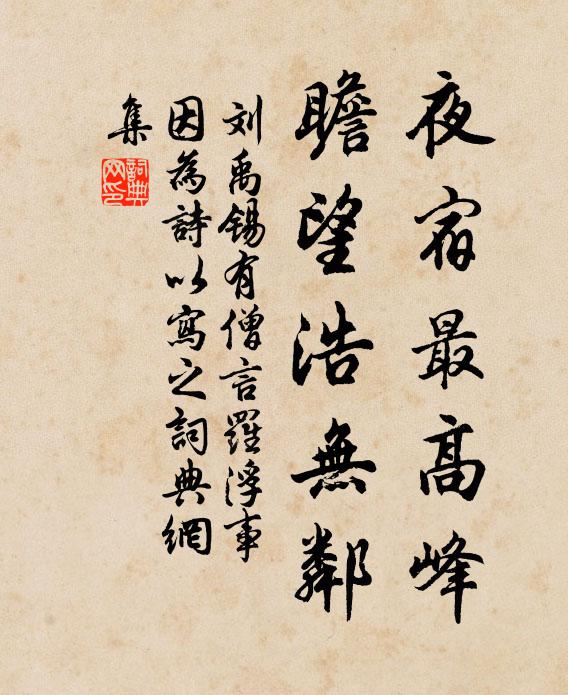 夜宿最高峰
瞻望浩無鄰
刘禹锡有僧言羅浮事
因為詩以寫之詞典網
集
詞典
网印